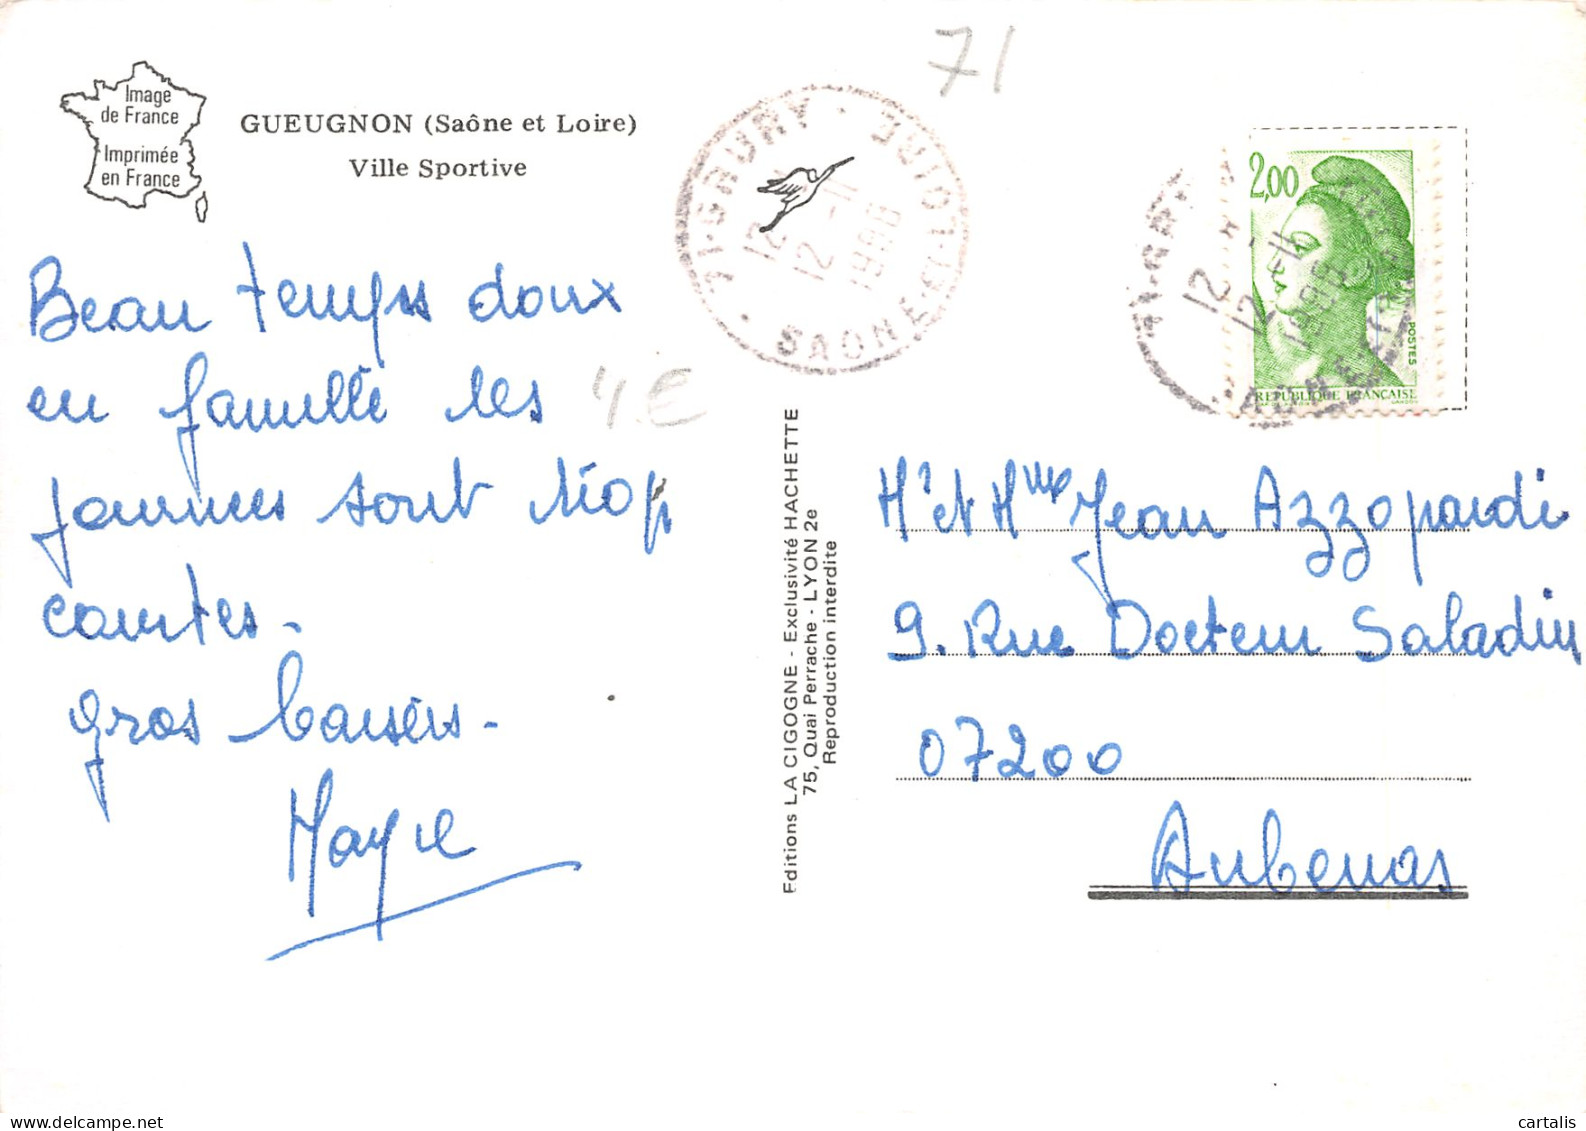 Image
de France
Imprimée
en France
GUEUGNON (Saône et Loire)
Ville Sportive
71
71 GRURY
12 H
12 - 11
SAONE
Beau temps doux
en famille les
journées sont trop
courtes -
gros baisers -
4 €
Editions LA CIGOGNE - Exclusivité HACHETTE
75, Quai Perrache - LYON 2e
Reproduction interdite
2,00
POSTES
REPUBLIQUE FRANÇAISE
Mr et Mme Jean Azzopardi
9. Rue Docteur Saladin
07200
Aubenas
cartalis